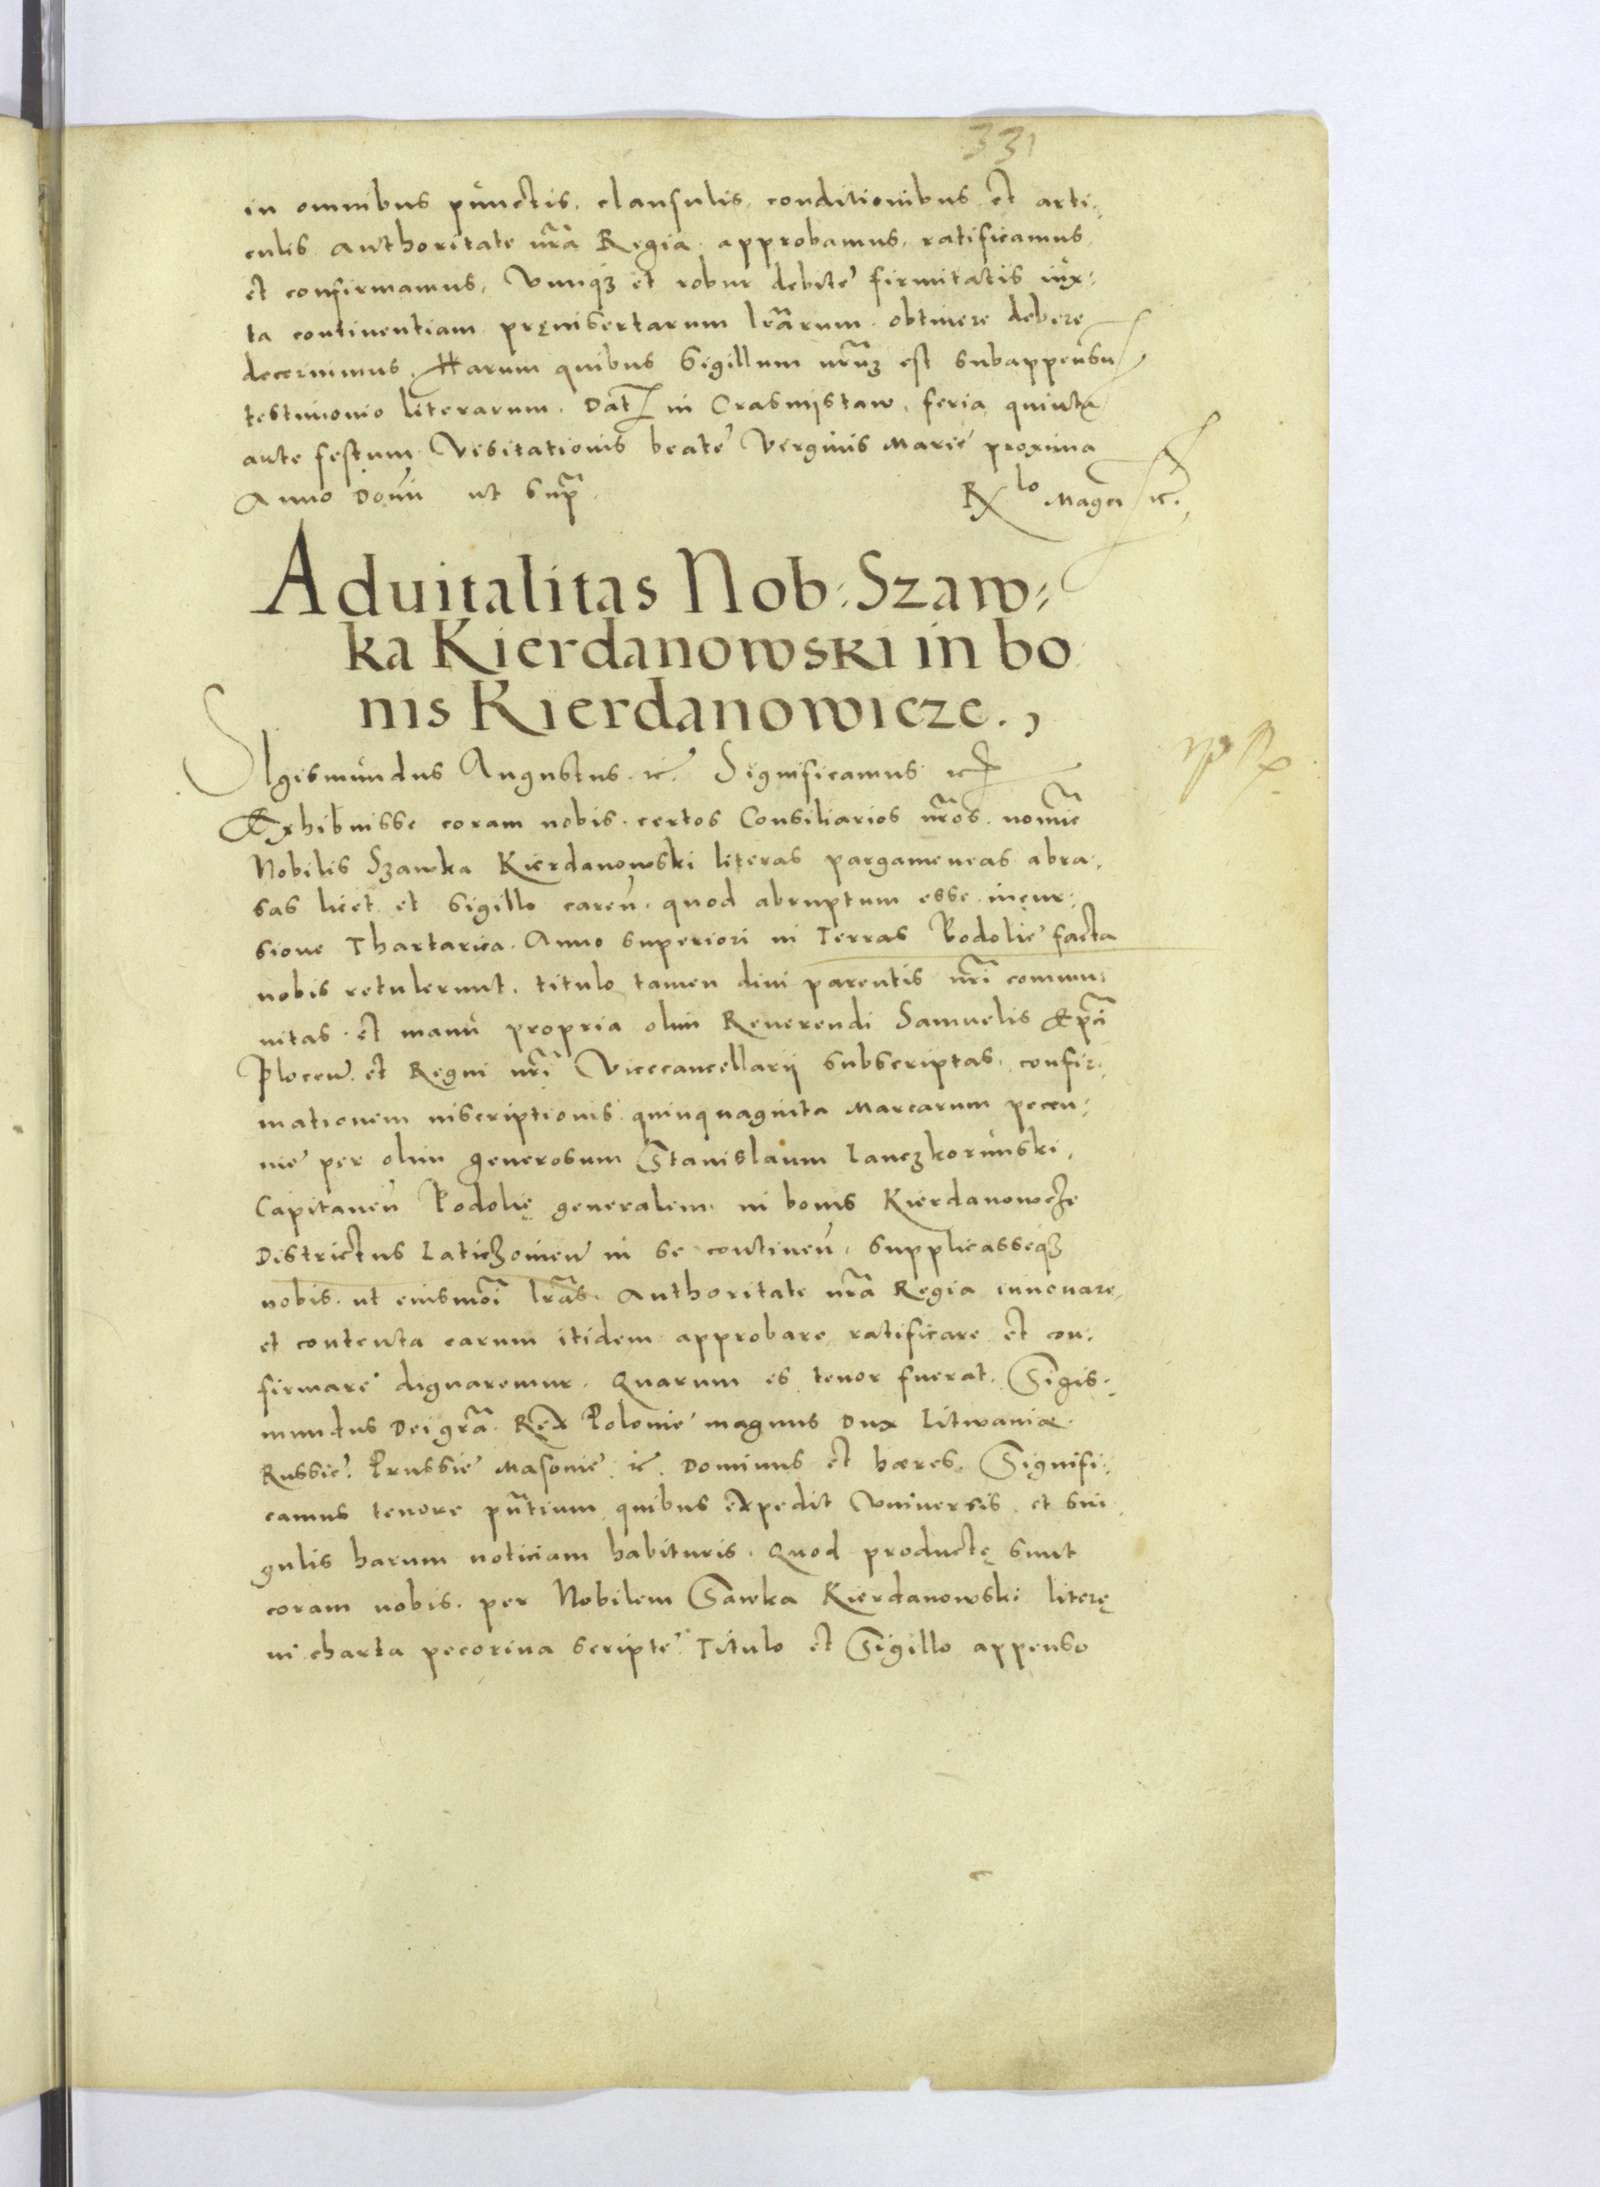 331
in omnibus punctis, clausulis, conditionibus et arti⸗
culis authoritate nr̃a Regia approbamus, ratificamus,
et confirmamus, Vimqꝫ et robur debite firmitatis iux⸗
ta continentiam pręinsertarum lr̃arum obtinere debere
decernimus. Harum quibus Sigillum nr̃uꝫ est subappensũ
testimonio literarum. Dat in Crasnijstaw, feria quinta
ante festum Visitationis beate Verginis Marie proxima
Anno Domĩ ut supr̃.
Rx lo Magci ꝛc.
Aduitalitas Nob: Szaw⸗
ka Kierdanowski in bo
nis Kierdanowicze.,
SIgismundus Augustus ꝛc. Significamus ꝛc
Exhibuisse coram nobis certos Consiliarios nr̃os nomĩe
Nobilis Szawka Kierdanowski literas pargameneas abra⸗
sas licet et sigillo careñ. quod abruptum esse incur⸗
sione Thartarica Anno superiori in Terras Podolie facta
nobis retulerunt, titulo tamen diui parentis nr̃i commu⸗
nitas et manu propria olim Reuerendi Samuelis Ep̃ci
Ploceñ. et Regni nr̃i Vicecancellarij subscriptas, confir⸗
mationem inscriptionis quinquaginta Marcarum pecu⸗
nie per olim generosum Stanislaum Lanczkorunski,
Capitaneũ Podolię generalem in bonis Kierdanowcze
Districtus Laticzouieñ in se contineñ, supplicasseqꝫ
nobis, ut eiusmõi lr̃as Authoritate nr̃a Regia innouare,
et contenta earum itidem approbare ratificare et con⸗
firmare dignaremur. Quarum es tenor fuerat. Sigis⸗
mundus Dei gr̃a Rex Polonie magnus Dux Litwaniæ
Russie, Prussie Masouie ꝛc. Dominus et hæres. Signifi⸗
camus tenore pñtium quibus expedit Vniuersis et sin
gulis harum noticiam habituris. Quod productę sunt
coram nobis per Nobilem Sawka Kierdanowski literę
in charta pecorina scripte Titulo et Sigillo appenso